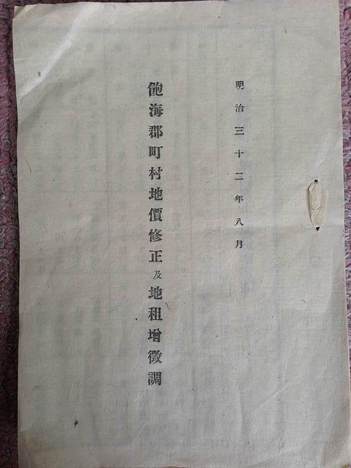 明治三十二年八月
飽海郡町村地價修正及地租增徵調